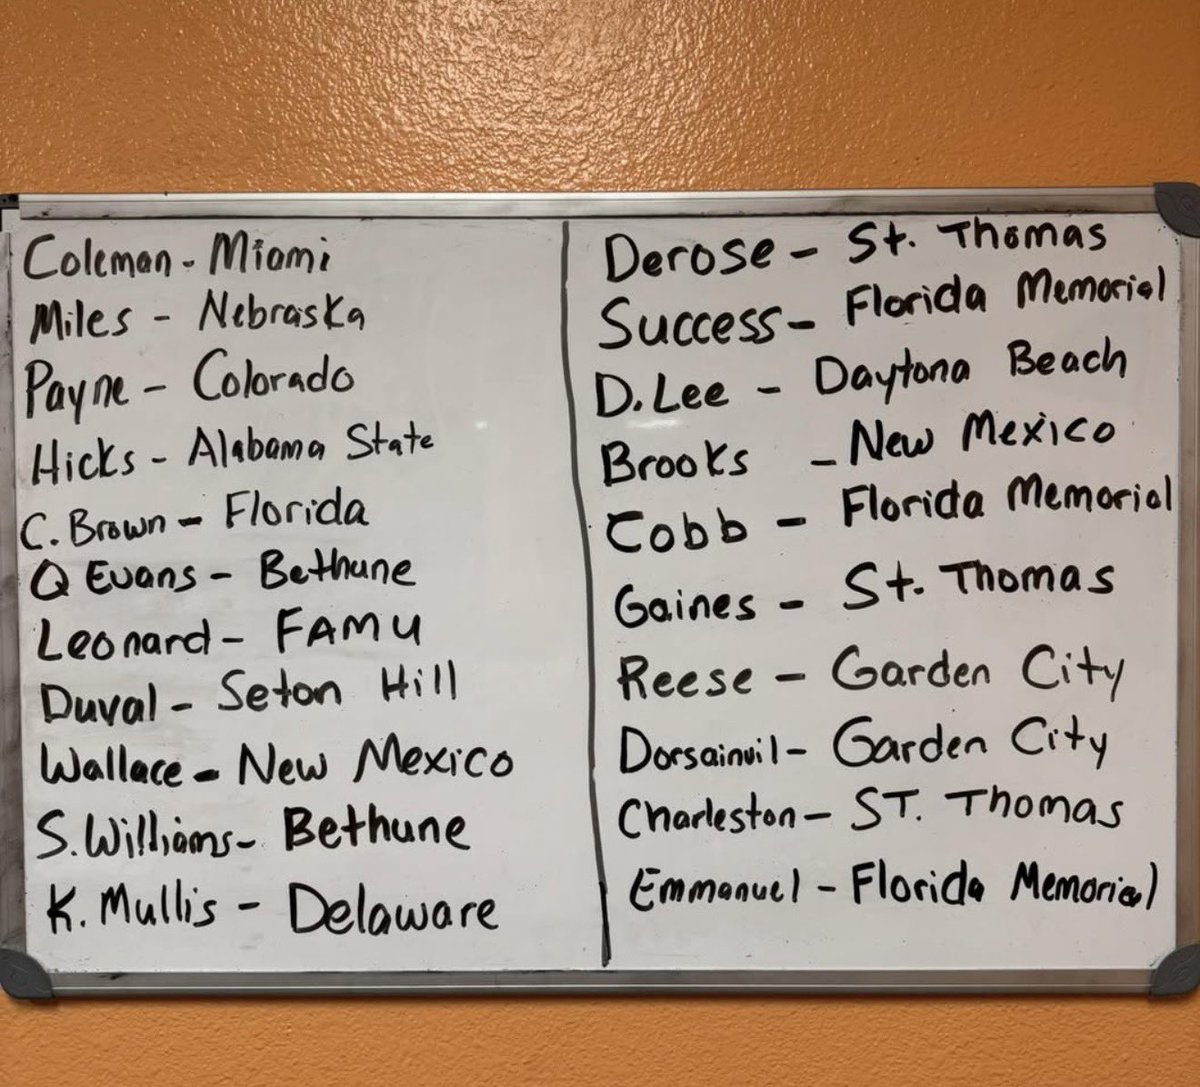 Coleman - Miami
Miles - Nebraska
Payne - Colorado
Hicks - Alabama State
C. Brown - Florida
Q Evans - Bethune
Leonard - FAMU
Duval - Seton Hill
Wallace - New Mexico
S. Williams - Bethune
K. Mullis - Delaware
Derose - St. Thomas
Success - Florida Memorial
D. Lee - Daytona Beach
Brooks - New Mexico
Cobb - Florida Memorial
Gaines - St. Thomas
Reese - Garden City
Dorsainvil - Garden City
Charleston - ST. Thomas
Emmanuel - Florida Memorial